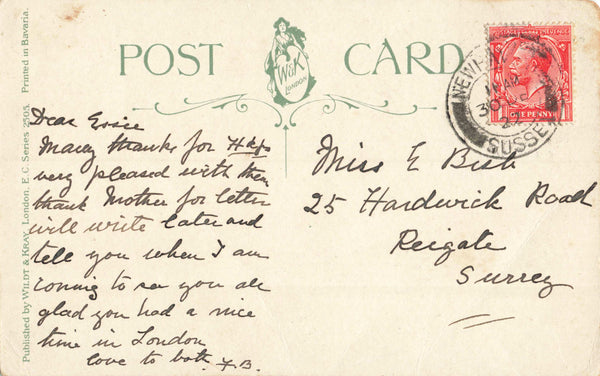 POST CARD
W&K
LONDON
ONE PENNY
NEWH
11 AM
30
SUSSE
Published by WILDT & KRAY, London, E.C. Series 2505. Printed in Bavaria.
Dear Essie
Many thanks for
very pleased with them
thank Mother for letter
will write later and
tell you when I am
coming to see you all
glad you had a nice
time in London
love to both F.B.
Miss E Bish
25 Hardwick Road
Reigate
Surrey